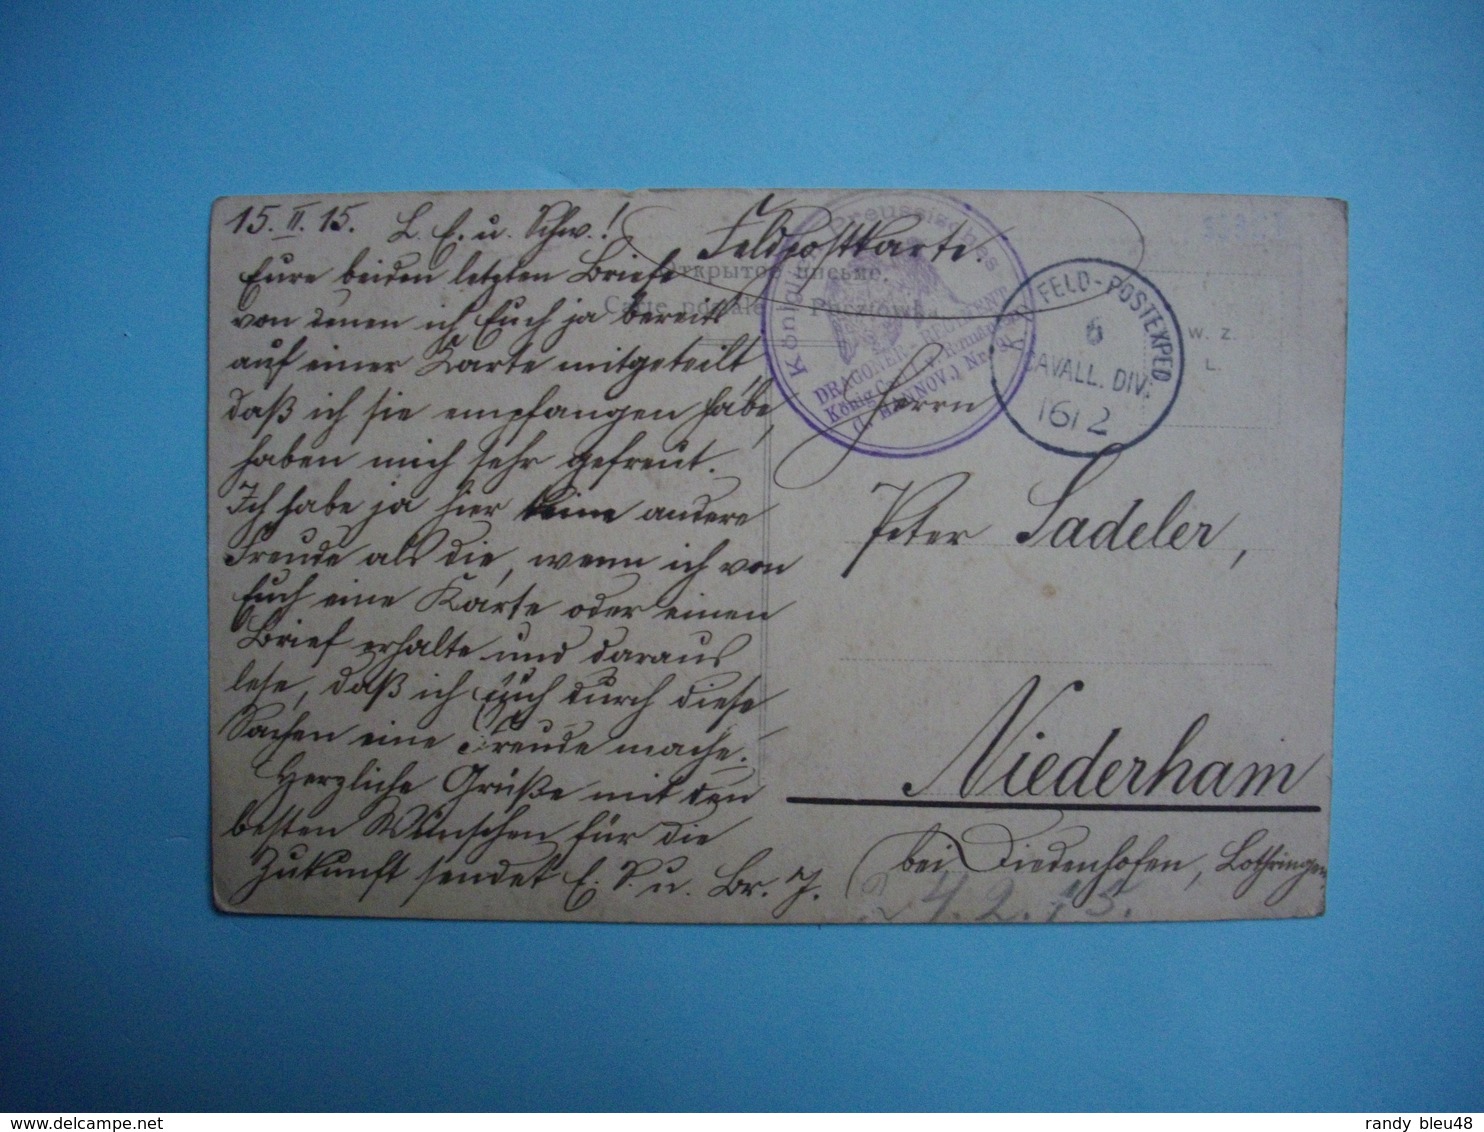 15. II. 15. L. E. u. Schw.!
Eure beiden letzten Briefe
von denen ich Euch ja bereits
auf einer Karte mitgeteilt
daß ich sie empfangen habe,
haben mich sehr gefreut.
Ich habe ja hier keine andere
Freude als die, wenn ich von
Euch eine Karte oder einen
Brief erhalte und daraus
lese, daß ich Euch durch diese
Sachen eine Freude mache.
Herzliche Grüße mit den
besten Wünschen für die
Zukunft sendet E. S. u. Br. J.
Feldpostkarte.
Открытое письмо.
Carte postale
Königlich Preussisches
DRAGONER-REGIMENT
König Carl I. v. Rumänien
(1. HANNOV.) Nr. 9
FELD-POSTEXPED.
6
CAVALL. DIV.
16/2
W. Z.
L.
Herrn
Peter Sadeler,
Niederham
bei Diedenhofen, Lothringen
24.2.15.
delcampe.net
randy bleu48